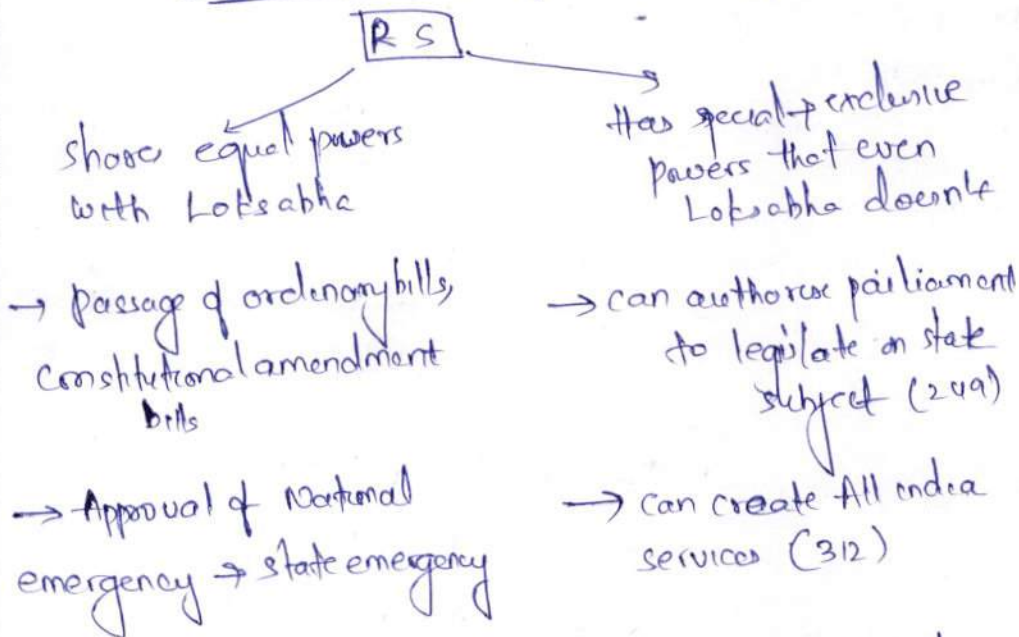 R S
share equal powers
with Loksabha
→ passage of ordinary bills,
constitutional amendment
bills
→ Approval of National
emergency → state emergency
Has special → exclusive
powers that even
Loksabha doesn't
→ can authorise parliament
to legislate on state
subject (249)
→ can create All india
services (312)